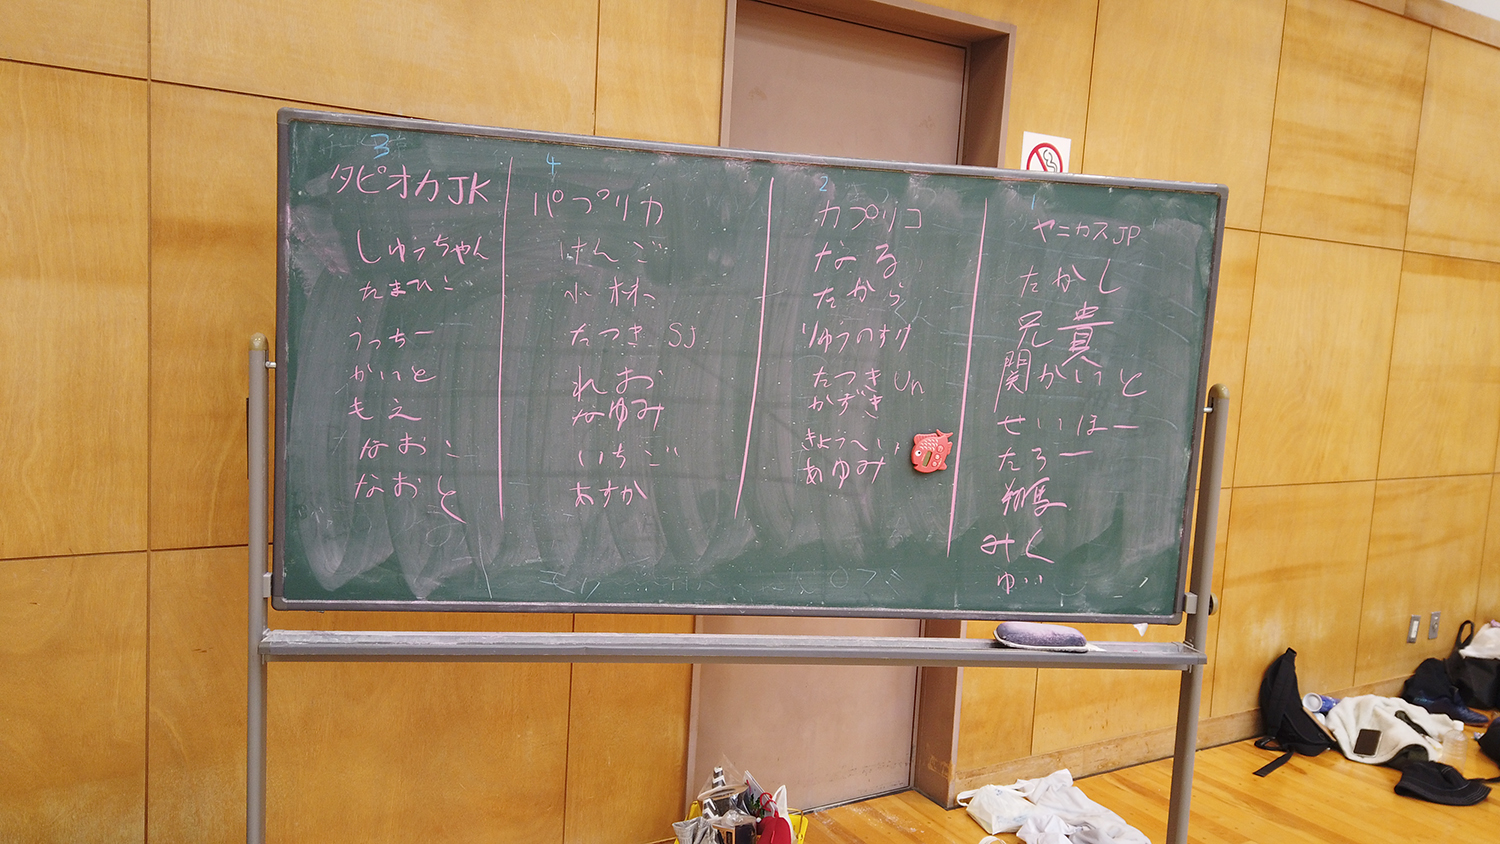 3
タピオカJK
しゅっちゃん
たまひこ
うっちー
かいと
もえ
なおこ
なおと
4
パプリカ
けんご
小林
たつき SJ
れお
なゆみ
いちご
あすか
2
カプリコ
なる
たから
りゅうのすけ
たつき Un
かずき
きょうへい
あゆみ
1
ヤニカスJP
たかし
兄貴
関かいと
せいほー
たろー
翔馬
みく
ゆい